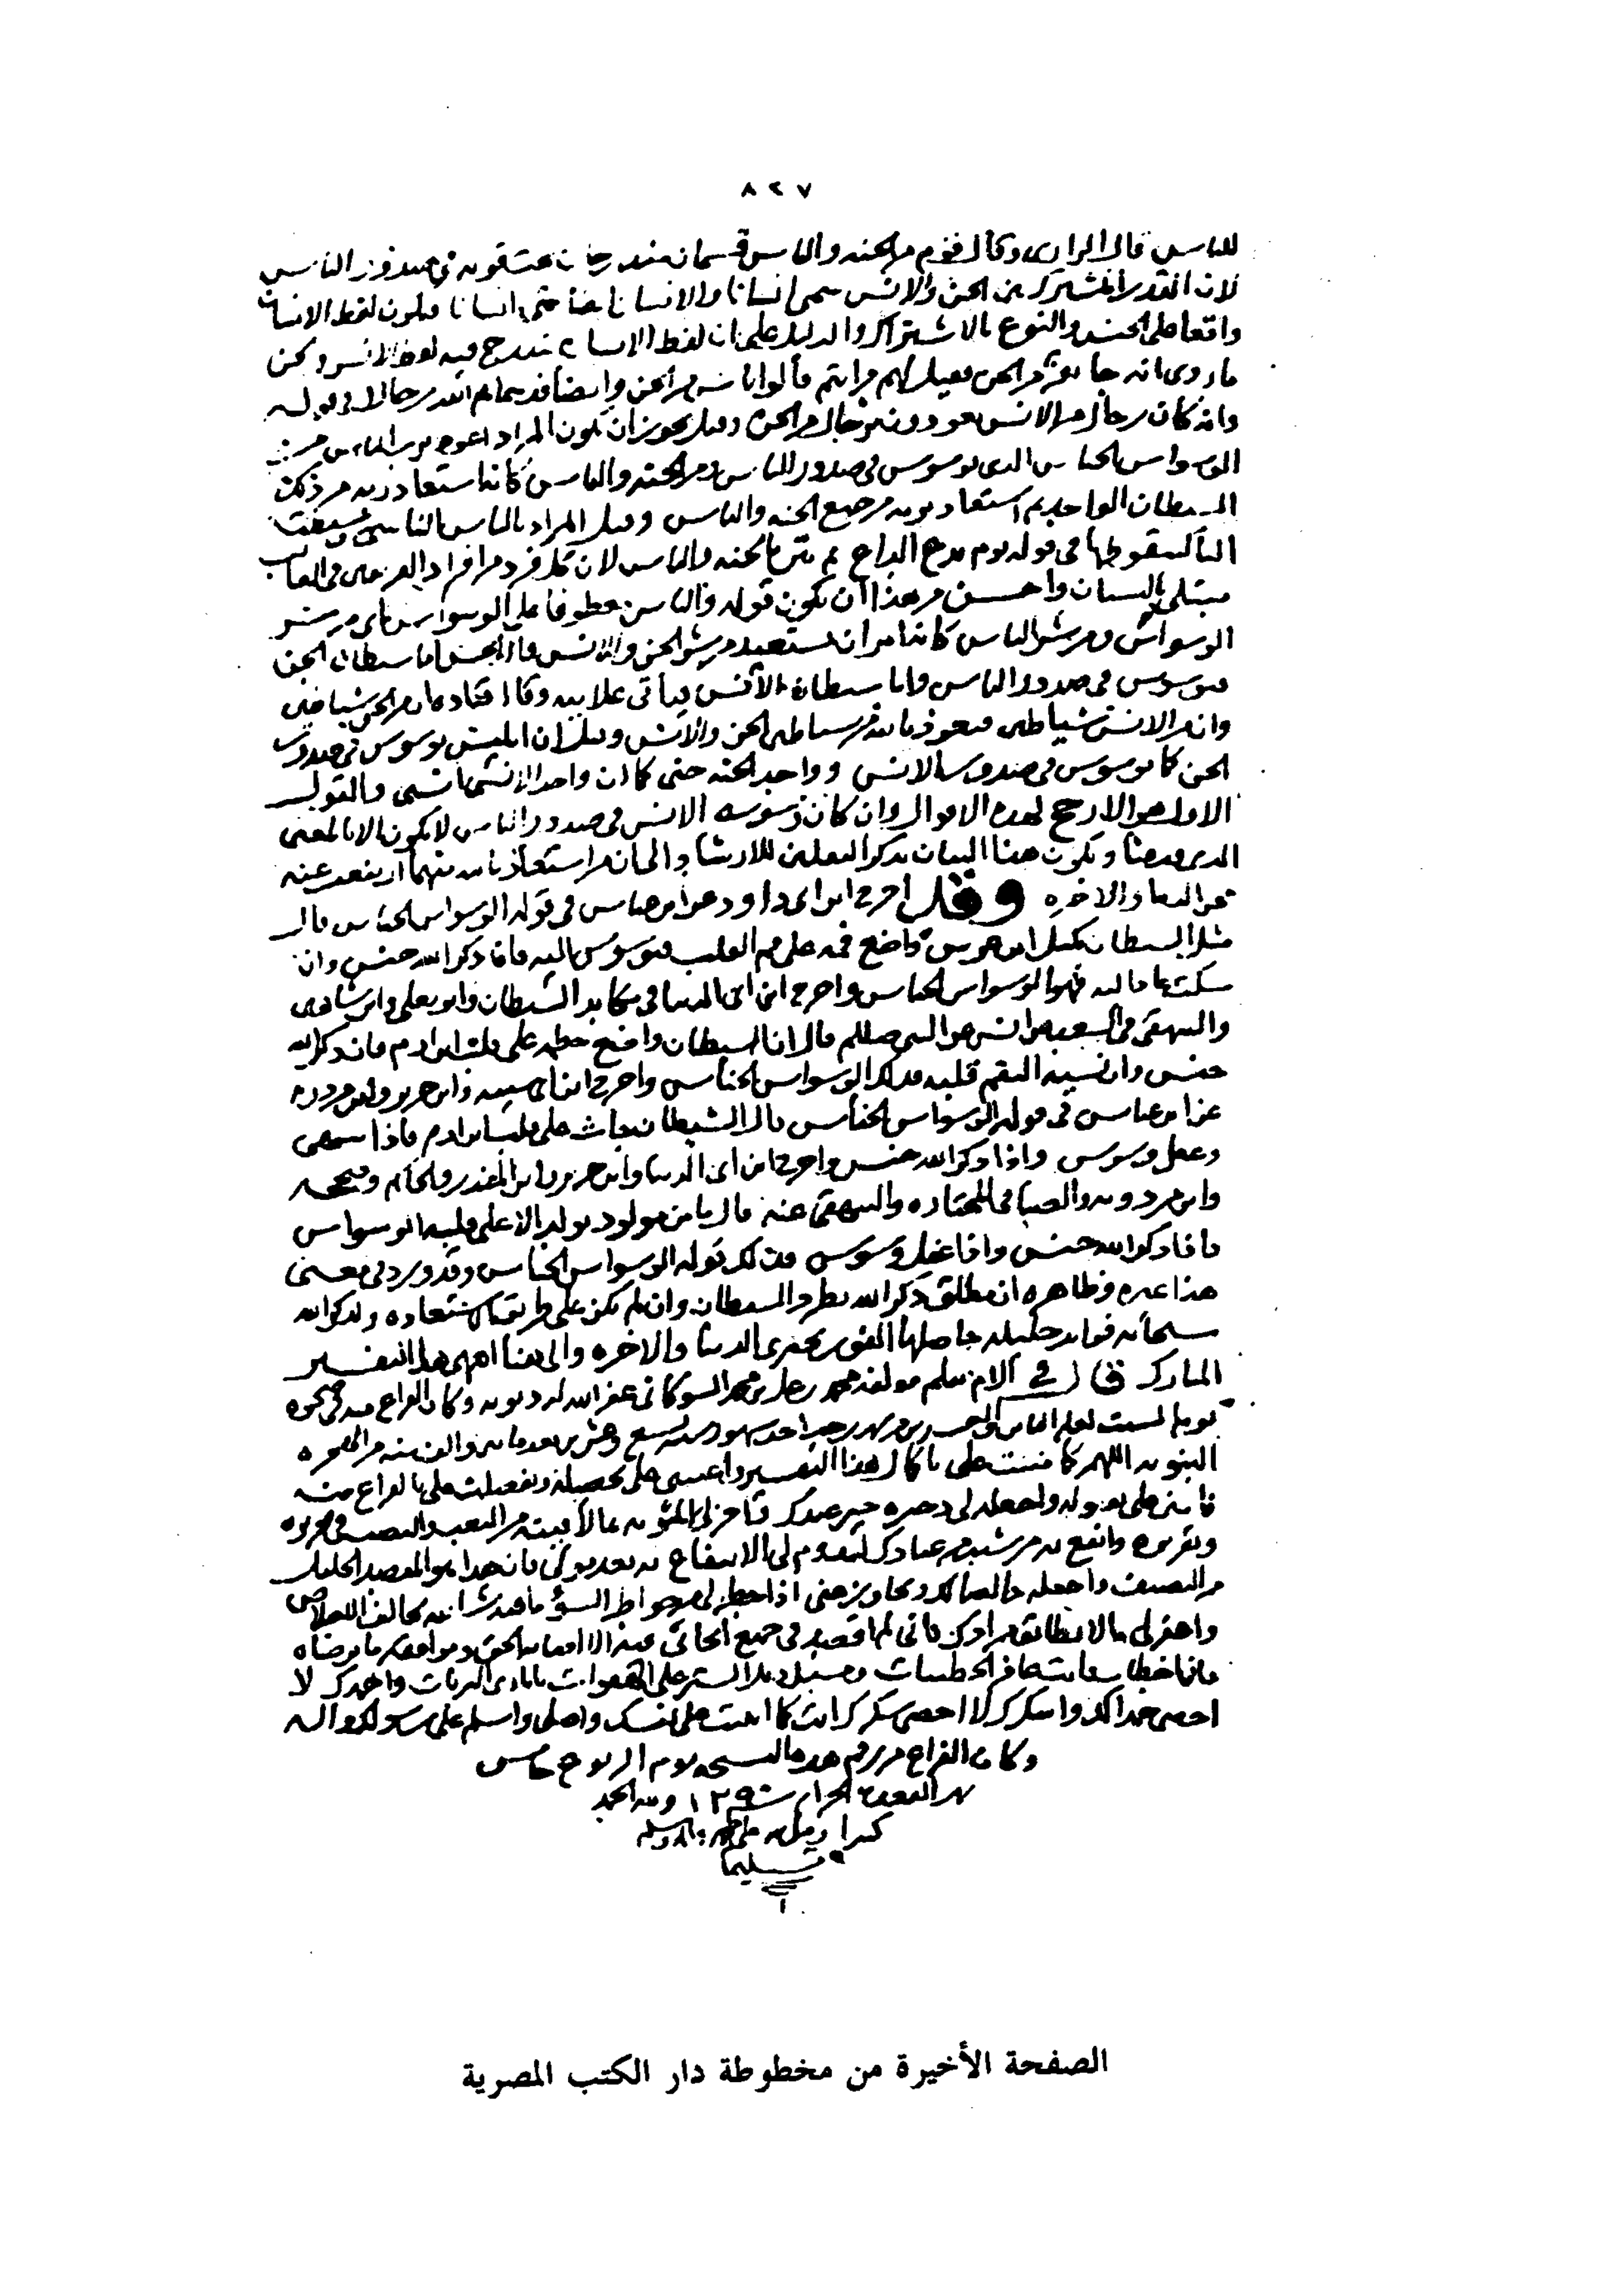 ٨٢٧
للناس قال الرازي وقال قوم من الجنة والناس قسمان مندرجان تحت قوله في صدور الناس
لان القدر المشترك بين الجن والانس سمى انسانا والانسان ايضا سمى انسانا فيكون لفظ الانسان
واقعا على الجنس والنوع بالاشتراك والدليل على ان لفظ الانسان يندرج فيه لفظ الانس والجن
ما روى انه جا نفر من الجن فقيل لهم من انتم قالوا ناس من الجن وايضا قد سماهم الله رجالا في قوله
وانه كان رجال من الانس يعوذون برجال من الجن وقيل يجوز ان يكون المراد اعوذ برب الناس من
الوسواس الخناس الذي يوسوس في صدور الناس ومن الجنة والناس كانه استعاذ ربه من ذلك
الشيطان الواحد ثم استعاذ بربه من جميع الجنة والناس وقيل المراد بالناس الناسي وسقطت
اليا كسقوطها في قوله يوم يدع الداع ثم بين بالجنة والناس لان كل فرد من افراد الفريقين في الغالب
مبتلى بالنسيان واحسن من هذا ان يكون قوله والناس معطوفا على الوسواس اي من شر
الوسواس ومن شر الناس كانه امر ان يستعيذ من شر الجن والانس قال الحسن اما شيطان الجن
فيوسوس في صدور الناس واما شيطان الانس فيأتي علانية وقال قتادة ان من الجن شياطين
وان من الانس شياطين فنعوذ بالله من شياطين الجن والانس وقيل ان ابليس يوسوس في صدور
الجن كما يوسوس في صدور الانس وواحد الجنة جني كما ان واحد الانس انسي والقول
الاول هو الارجح لهذه الاقوال وان كان وسوسة الانس في صدور الناس لا يكون الا بالمعنى
الذي قدمنا ويكون هذا البيان بذكر الثقلين للارشاد الى ان من استعاذ بالله منهما ارتفعت عنه
محن الدنيا والاخرة وقد اخرج ابن ابي داود عن ابن عباس في قوله الوسواس الخناس قال
مثل الشيطان كمثل ابن عرس واضع فمه على فم القلب فيوسوس اليه فاذا ذكر الله خنس وان
سكت عاد اليه فهو الوسواس الخناس واخرج ابن ابي الدنيا في مكايد الشيطان وابو يعلى وابن شاهين
والبيهقي في الشعب عن انس عن النبي صللم قال ان الشيطان واضع خطمه على قلب ابن ادم فان ذكر الله
خنس وان نسيه التقم قلبه فذلك الوسواس الخناس واخرج ابن ابي شيبة وابن جرير وابن مردويه
عن ابن عباس في قوله الوسواس الخناس قال الشيطان جاث على قلب ابن ادم فاذا سهى
وغفل وسوس واذا ذكر الله خنس واخرج ابن ابي الدنيا وابن جرير وابن المنذر والحاكم وصححه
وابن مردويه والضيا في المختارة والبيهقي عنه قال ما من مولود يولد الا على قلبه الوسواس
فاذا ذكر الله خنس واذا غفل وسوس فذلك قوله الوسواس الخناس وقد ورد في معنى
هذا غيره وظاهره ان مطلق ذكر الله يطرد الشيطان وان لم يكن على طريق الاستعاذة ولذكر الله
سبحانه فوائد جليلة حاصلها الفوز بخيري الدنيا والاخرة والى هنا انتهى هذا التفسير
المبارك قال مولفه محمد بن علي بن محمد الشوكاني غفر الله له ذنوبه وكان الفراغ منه في ضحوة
يوم السبت لعله الثامن والعشرين من شهر رجب احد شهور سنة تسع وعشرين بعد مائتين والف سنة من الهجرة
النبوية اللهم كما مننت علي باكمال هذا التفسير واعنتني على تحصيله وتفضلت علي بالفراغ منه
فامنن علي بقبوله واجعله لي ذخيرة خير عندك واجزل لي المثوبة بما لاقيته من التعب والنصب في تحريره
وتقريره وانفع به من شئت من عبادك ليدوم لي الانتفاع به بعد موتي فان هذا هو المقصد الجليل
من التصنيف واجعله خالصا لك وتجاوز عني اذا خطر لي من خواطر السؤ ما فيه شائبة تخالف الاخلاص
واغفر لي ما لا يطابق مرادك فاني لم اقصد في جميع ابحاثي فيه الا اصابة الحق وموافقة ما ترضاه
فان اخطات فانت غافر الخطيات ومسبل ذيل الستر على الهفوات يا باري البريات واحمدك لا
احصي حمدا لك واشكرك لا احصي شكرك انت كما اثنيت على نفسك واصلي واسلم على رسولك واله
وكان الفراغ من رقم هذه النسخة يوم الربوع خامس
شهر القعدة الحرام سنة ١٢٩٠ ولله الحمد
كثيرا
تسليما
الصفحة الأخيرة من مخطوطة دار الكتب المصرية